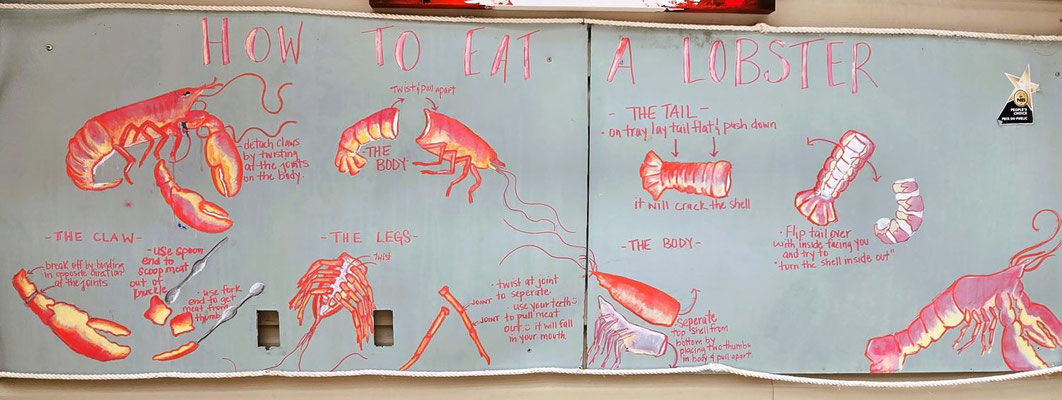 HOW TO EAT A LOBSTER
detach claws
by twisting
at the joints
on the body.
Twist & pull apart
-THE
BODY
-THE CLAW-
break off by bending
in opposite direction
at the joints
-use spoon
end to
scoop meat
out of
knuckle
•use fork
end to get
meat from
thumb
-THE LEGS-
Twist
JOINT
JOINT
• twist at joint
to seperate.
use your teeth
to pull meat
out. it will fall
in your mouth.
- THE TAIL -
• on tray lay tail flat & push down
it will crack the shell
• Flip tail over
with inside facing you
and try to
"turn the shell inside out"
- THE BODY-
• seperate
top shell from
bottom by
placing two thumbs
in body & pull apart.
PEOPLE'S
CHOICE
PRIX DU PUBLIC